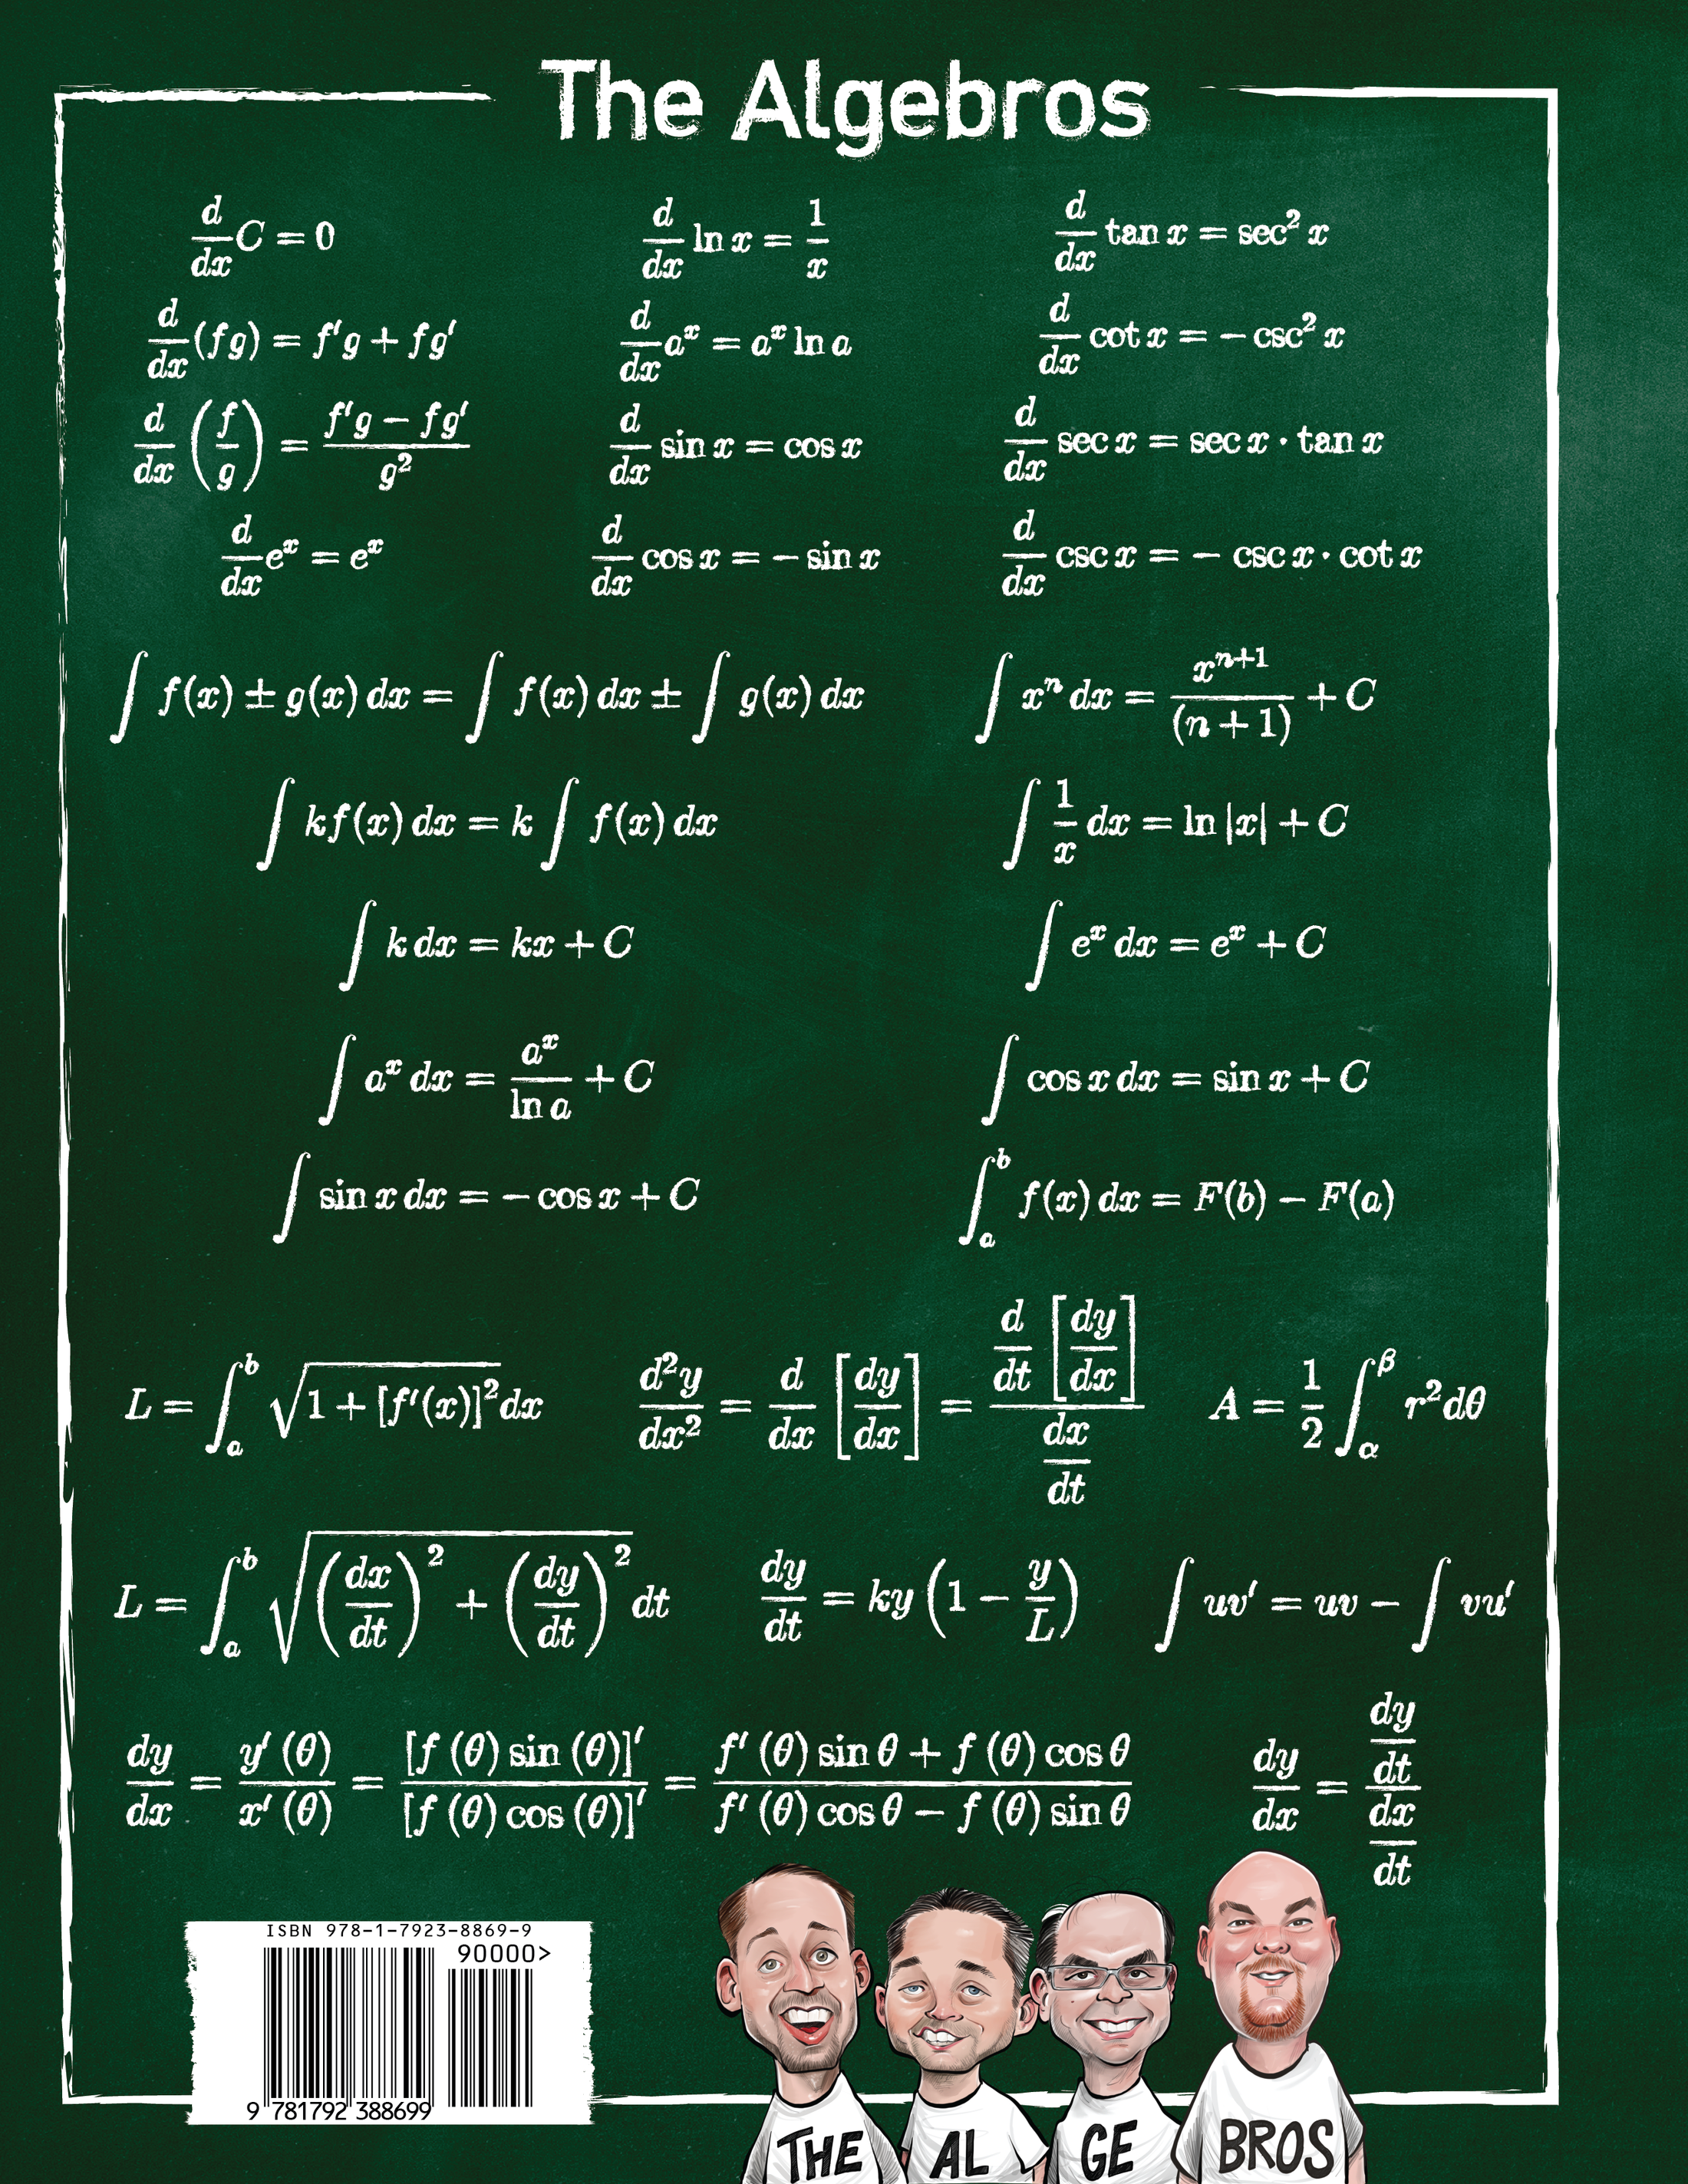 The Algebros
d/dx C = 0
d/dx ln x = 1/x
d/dx tan x = sec² x
d/dx (fg) = f′g + fg′
d/dx aˣ = aˣ ln a
d/dx cot x = − csc² x
d/dx (f/g) = (f′g − fg′)/g²
d/dx sin x = cos x
d/dx sec x = sec x · tan x
d/dx eˣ = eˣ
d/dx cos x = − sin x
d/dx csc x = − csc x · cot x
∫ f(x) ± g(x) dx = ∫ f(x) dx ± ∫ g(x) dx
∫ xⁿ dx = xⁿ⁺¹/(n + 1) + C
∫ kf(x) dx = k ∫ f(x) dx
∫ 1/x dx = ln |x| + C
∫ k dx = kx + C
∫ eˣ dx = eˣ + C
∫ aˣ dx = aˣ/ln a + C
∫ cos x dx = sin x + C
∫ sin x dx = − cos x + C
∫ₐᵇ f(x) dx = F(b) − F(a)
L = ∫ₐᵇ √(1 + [f′(x)]²) dx
d²y/dx² = d/dx [dy/dx] = (d/dt [dy/dx])/(dx/dt)
A = 1/2 ∫_α^β r²dθ
L = ∫ₐᵇ √((dx/dt)² + (dy/dt)²) dt
dy/dt = ky (1 − y/L)
∫ uv′ = uv − ∫ vu′
dy/dx = y′ (θ)/x′ (θ) = [f (θ) sin (θ)]′/[f (θ) cos (θ)]′ = (f′ (θ) sin θ + f (θ) cos θ)/(f′ (θ) cos θ − f (θ) sin θ)
dy/dx = (dy/dt)/(dx/dt)
ISBN 978-1-7923-8869-9
90000>
9 781792 388699
THE
AL
GE
BROS